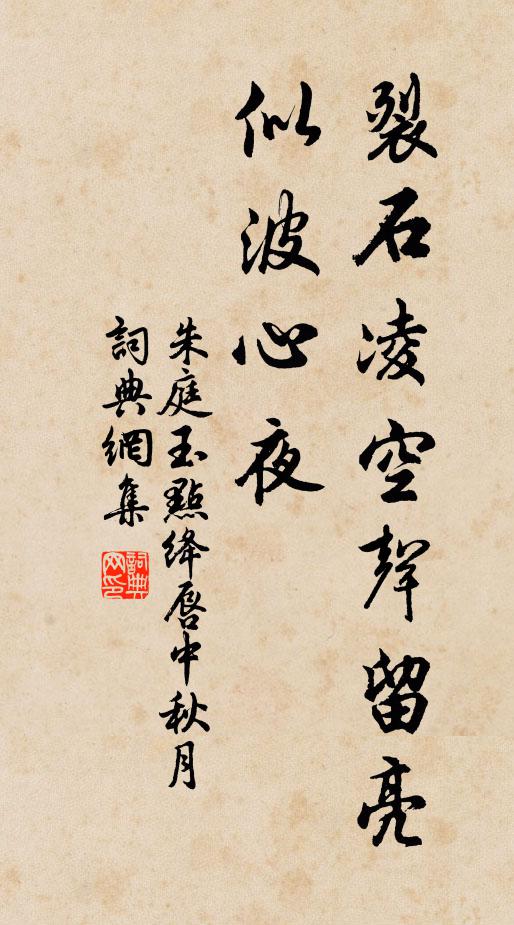 裂石凌空聲留亮
似波心夜
朱庭玉點絳唇中秋月
詞典網集
詞典网印